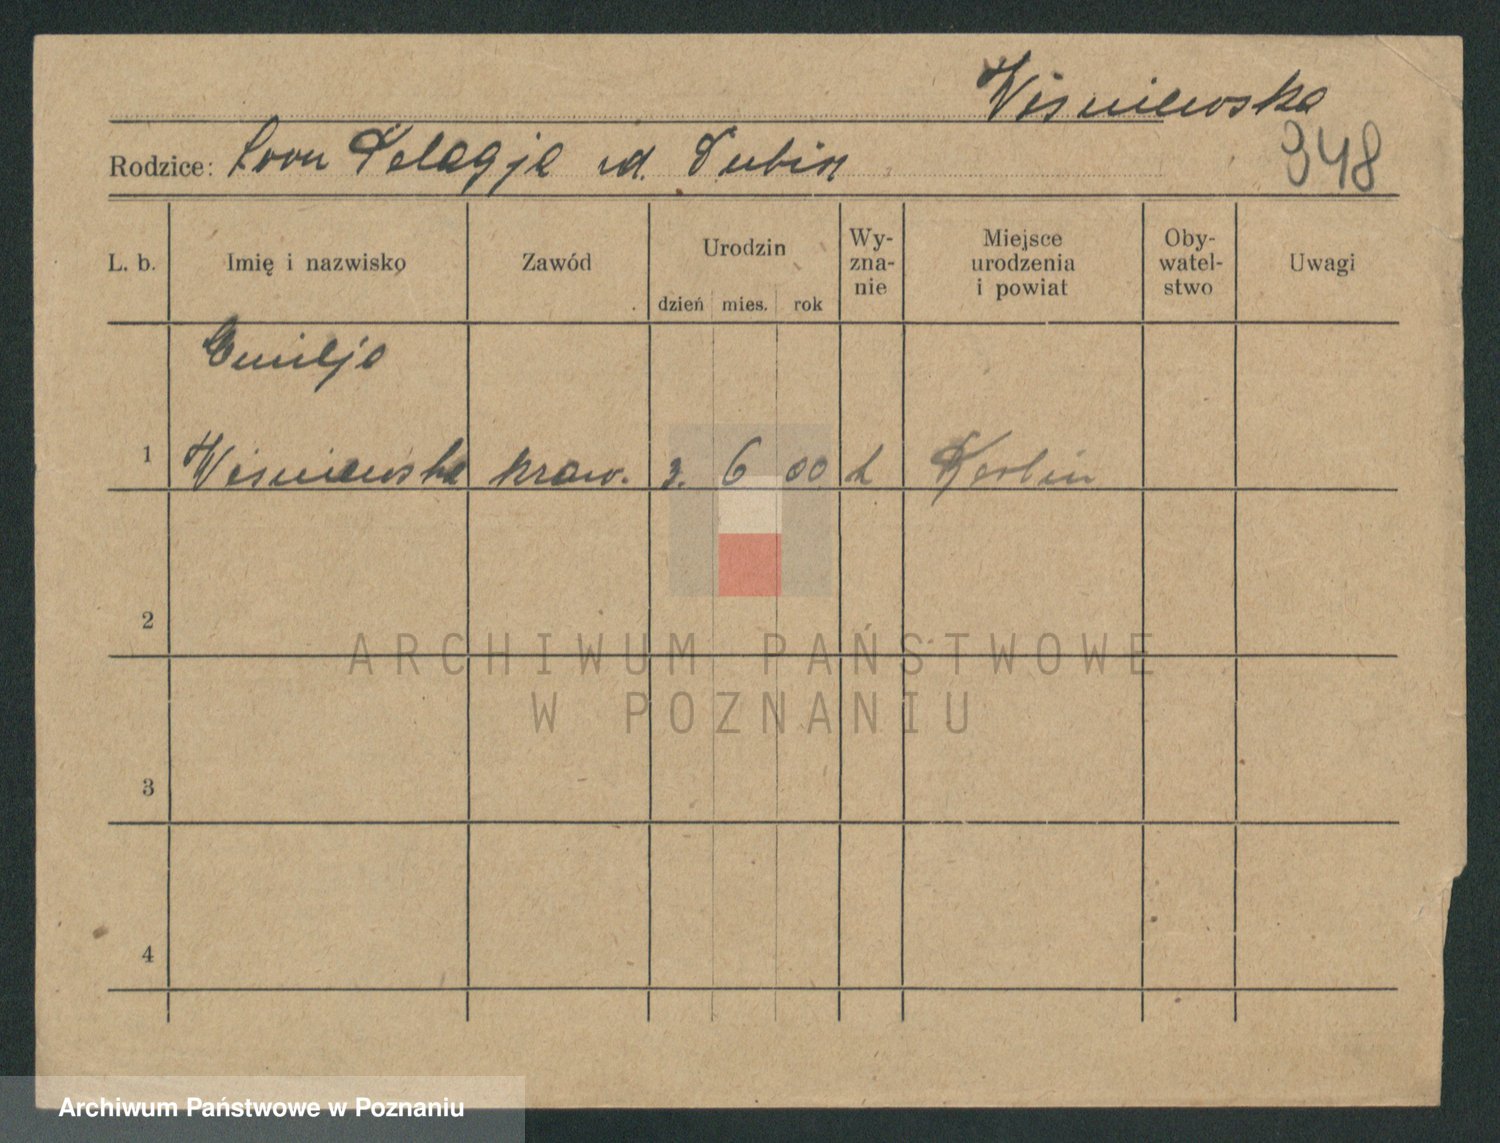 Wiśniewska
Rodzice: Leon Pelagja zd. Dubin
948
L. b.
Imię i nazwisko
Zawód
Urodzin
dzień mies. rok
Wy-
zna-
nie
Miejsce
urodzenia
i powiat
Oby-
watel-
stwo
Uwagi
Emilja
1 Wiśniewska kraw. 3. 6 00 k
2
3
4
ARCHIWUM PAŃSTWOWE
W POZNANIU
Archiwum Państwowe w Poznaniu